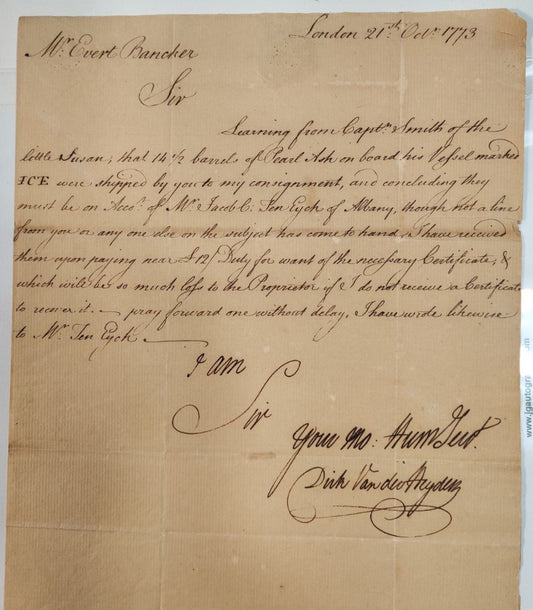 London 21st. Octr. 1773
Mr. Evert Bancker
Sir
Learning from Captn. Smith of the
little Susan, that 14 1/2 barrels of Pearl Ash on board his Vessel marked
ICE were shipped by you to my consignment, and concluding they
must be on Acco. of Mr. Jacob C. Ten Eyck of Albany, though not a line
from you or any one else on the subject has come to hand, I have received
them upon paying near £12/ Duty for want of the necessary Certificate, &
which will be so much loss to the Proprietor if I do not receive a Certificate
to recover it. — pray forward one without delay, I have wrote likewise
to Mr. Ten Eyck. —
I am
Sir
Your mo: Hum Servt.
Dirk Van der Heyden